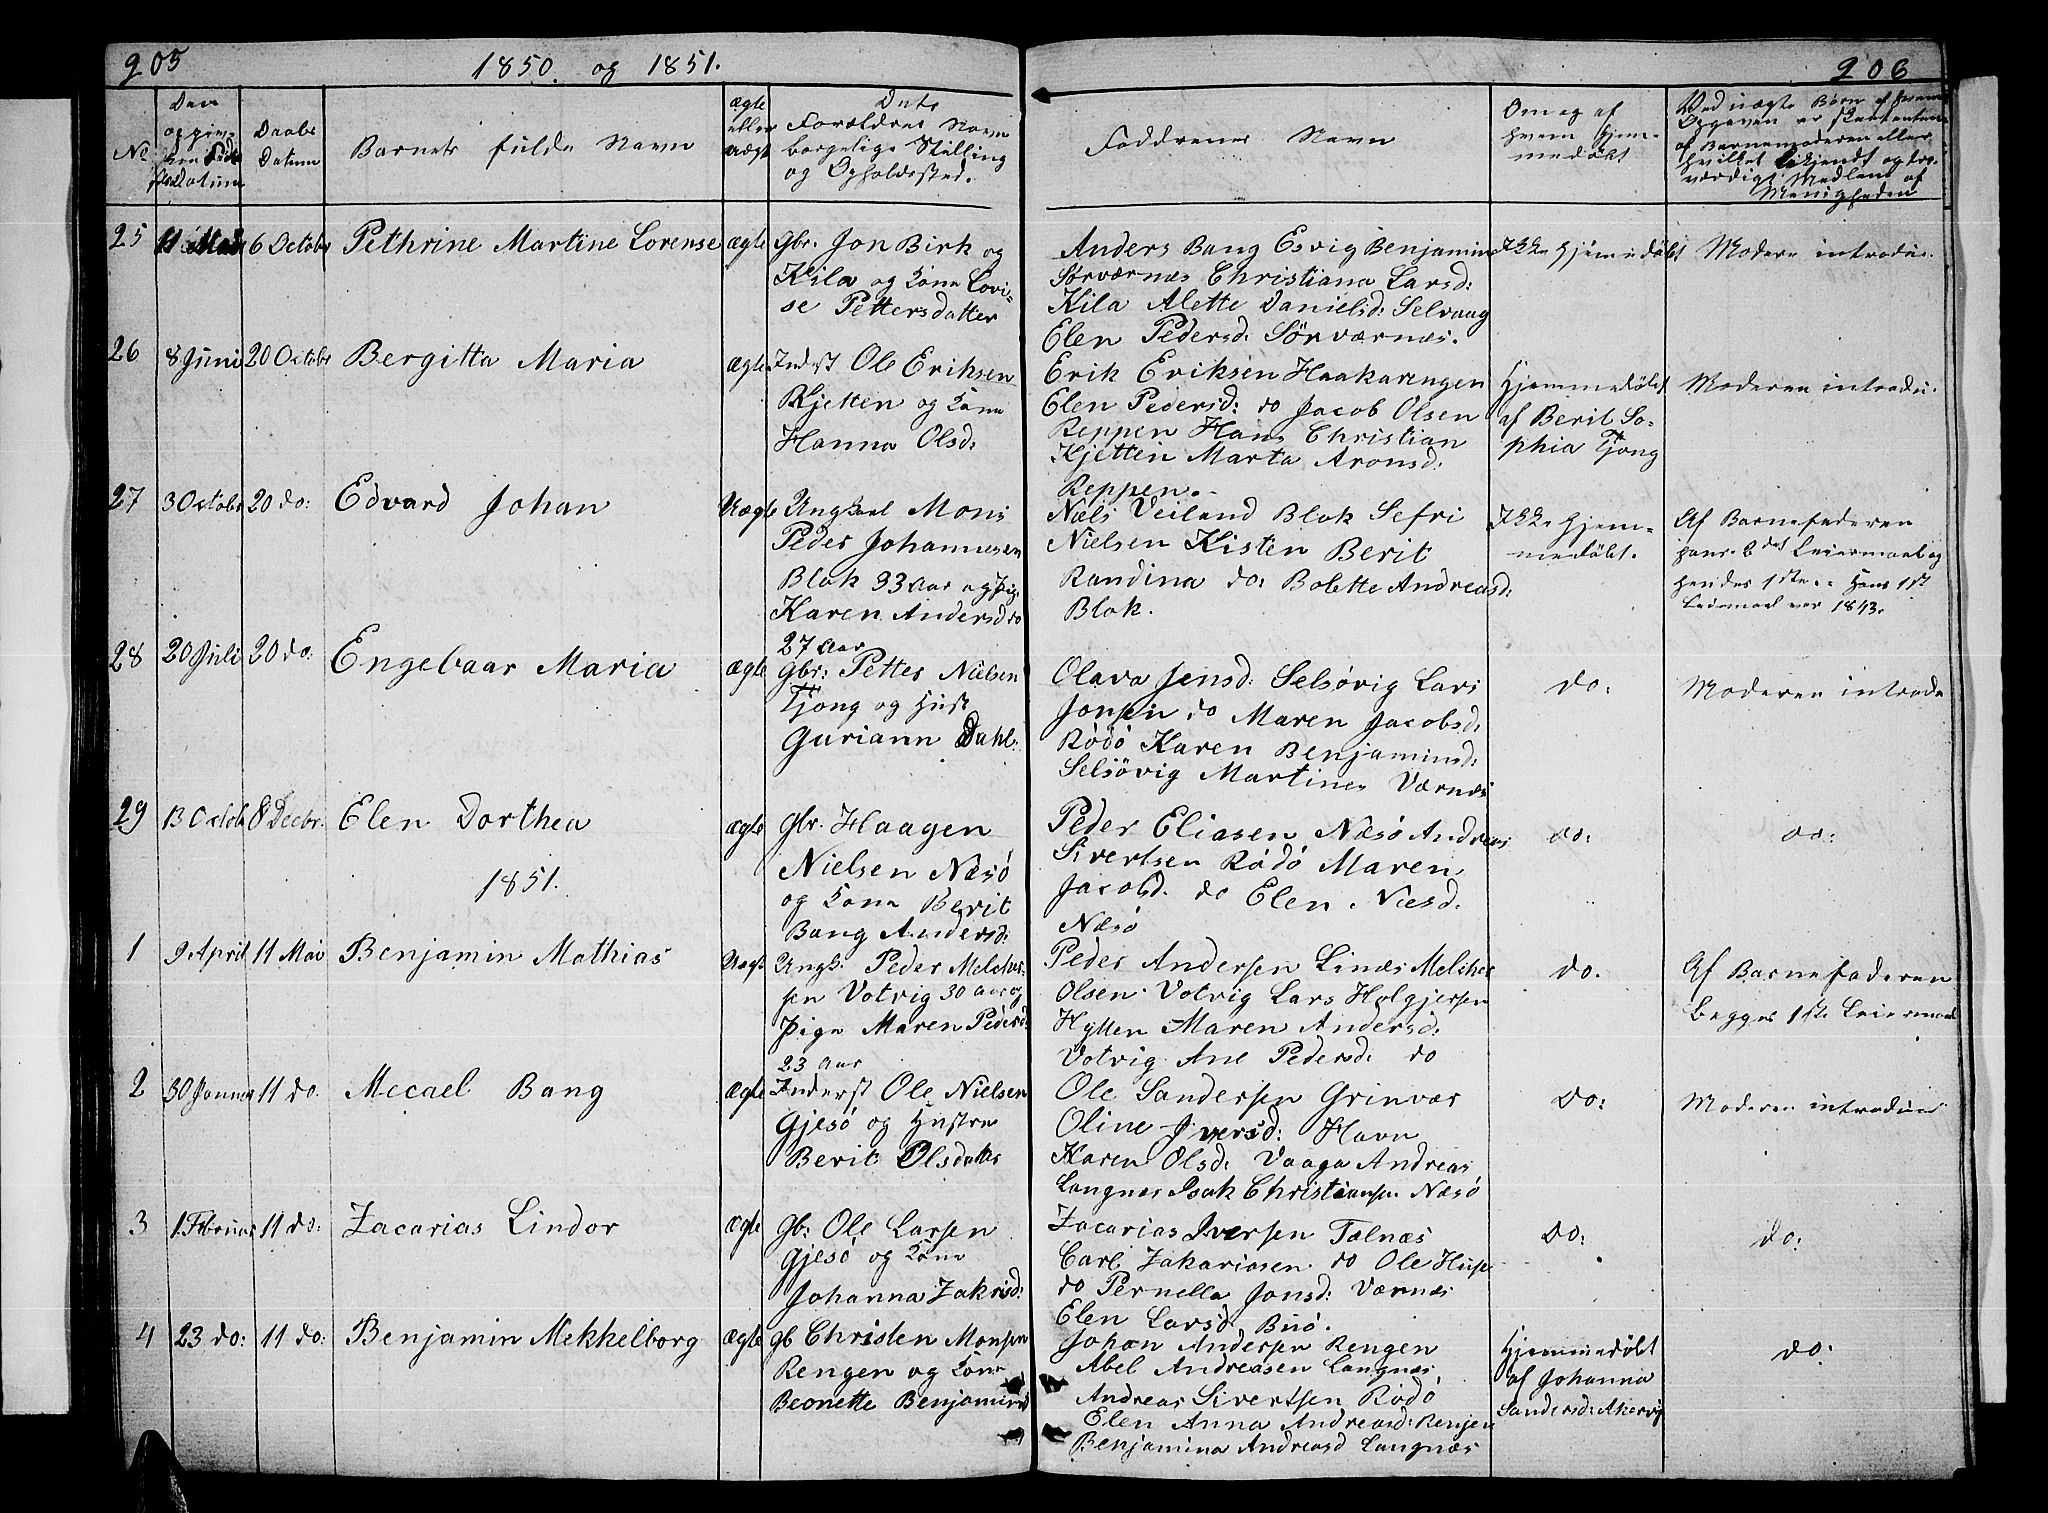 205
1850. og 1851.
206
No
Den opgivne Føds. Datum
Daabs Datum
Barnets fulde Navn
ægte eller uægte
Dets Forældres Navn borgelige Stilling og Opholdssted.
Faddrenes Navn
Om og af hvem hjemmedøbt
Ved uægte Børn af hvem Opgaven er
af Barnemoderen eller
Medlem af
Menigheden
25
11 Mai
6 Octobr
Pethrine Martine Lorense
ægte
Gbr. Jon Birk og
Kila og Kone Lovi-
se Pettersdatter
Anders Bang Esvig Benjamin
Sørværnæs Christiana Larsd:
Kila Alette Danielsd: Selvaag
Elen Pedersd: Sørværnæs.
Ikke hjemmedøbt
Modere introdu.
26
8 Juni
20 Octobr
Bergitta Maria
ægte
Inderst Ole Eriksen
Kjetten og Kone
Hanna Olsd:
Erik Eriksen Haakarengen
Elen Pedersd: do Jacob Olsen
Reppen Hans Christian
Kjetten Marta Aronsd:
Reppen.
Hjemmedøbt
af Berit So-
phia Tjong
Moderen introdu.
27
3 Octobr
20 do:
Edvard Johan
Uægte
Ungkarl Mons
Peder Johannesen
Blok 33 Aar og Pig.
Karen Andersd do
27 Aar
Nels Veiland Blok Sefri
Nielsen Kisten Berit
Randina do: Bolette Andreasd:
Blok.
Ikke hjem-
medøbt.
Af Barnefaderen
hans. Leiermaal og
hendes 1ste.. Hans 1st
Leiermaal var 1843.
28
20 Juli
20 do:
Engebaar Maria
ægte
Gbr: Petter Nielsen
Tjong og Hust
Guriann Dahl:
Olava Jensd: Selsøvig Lars
Jonsen do Maren Jacobsd:
Rødø Karen Benjaminsd:
Selsövig Martines Værnæs
do:
Moderen introdu
29
13 Octob
8 Decbr.
Elen Dorthea
ægte
Gbr. Haagen
Nielsen Næsö
og Kone Berit
Bang Andersd:
Peder Eliasen Næsø Andreas
Sivertsen Rødö Maren
Jacobsd. do Elen. Nielsd.
Næsö
do:
do:
1851.
1
9 April
11 Mai
Benjamin Mathias
Uægt
Ungk. Peder Melcher-
sen Votvig 30 Aar og
Pige Maren Pedersd:
23 Aar
Peder Andersen Linæs Melcher
Olsen Votvig Lars Holgjersen
Hytten Maren Andersd:
Votvig Ane Pedersd: do
do.
Af Barnefaderen
Begges 1ste Leiermaal
2
30 Januar
11 do.
Mecael Bang
ægte
Inderst Ole Nielsen
Gjesö og Hustru
Berit Olsdatter
Ole Sandersen Grinvær
Oline Iversd: Havn
Karen Olsd: Vaaga Andreas
Langnæs Isak Christiansen Næsö
do:
Moderen introdu
3
1. Februar
11 do:
Zacarias Lindor
ægte
Gb: Ole Larsen
Gjesö og Kone
Johanna Zakrisd:
Zacarias Iversen Talnæs
Carl Zakariasen do Ole Hus
do Pernella Jonsd: Værnæs
Elen Larsd. Buö.
do:
do:
4
23 do:
11 do:
Benjamin Mekkelborg
ægte
gb Christen Monsen
Rengen og Kone
Beonette Benjamind
Johan Andersen Rengen
Abel Andreasen Langnæs,
Andreas Sivertsen Rödö
Elen Anna Andreasd: Renjen
Benjamina Andreasd Langnæs
Hjemmedøbt
af Johanna
Sandersd: Akervig
do: